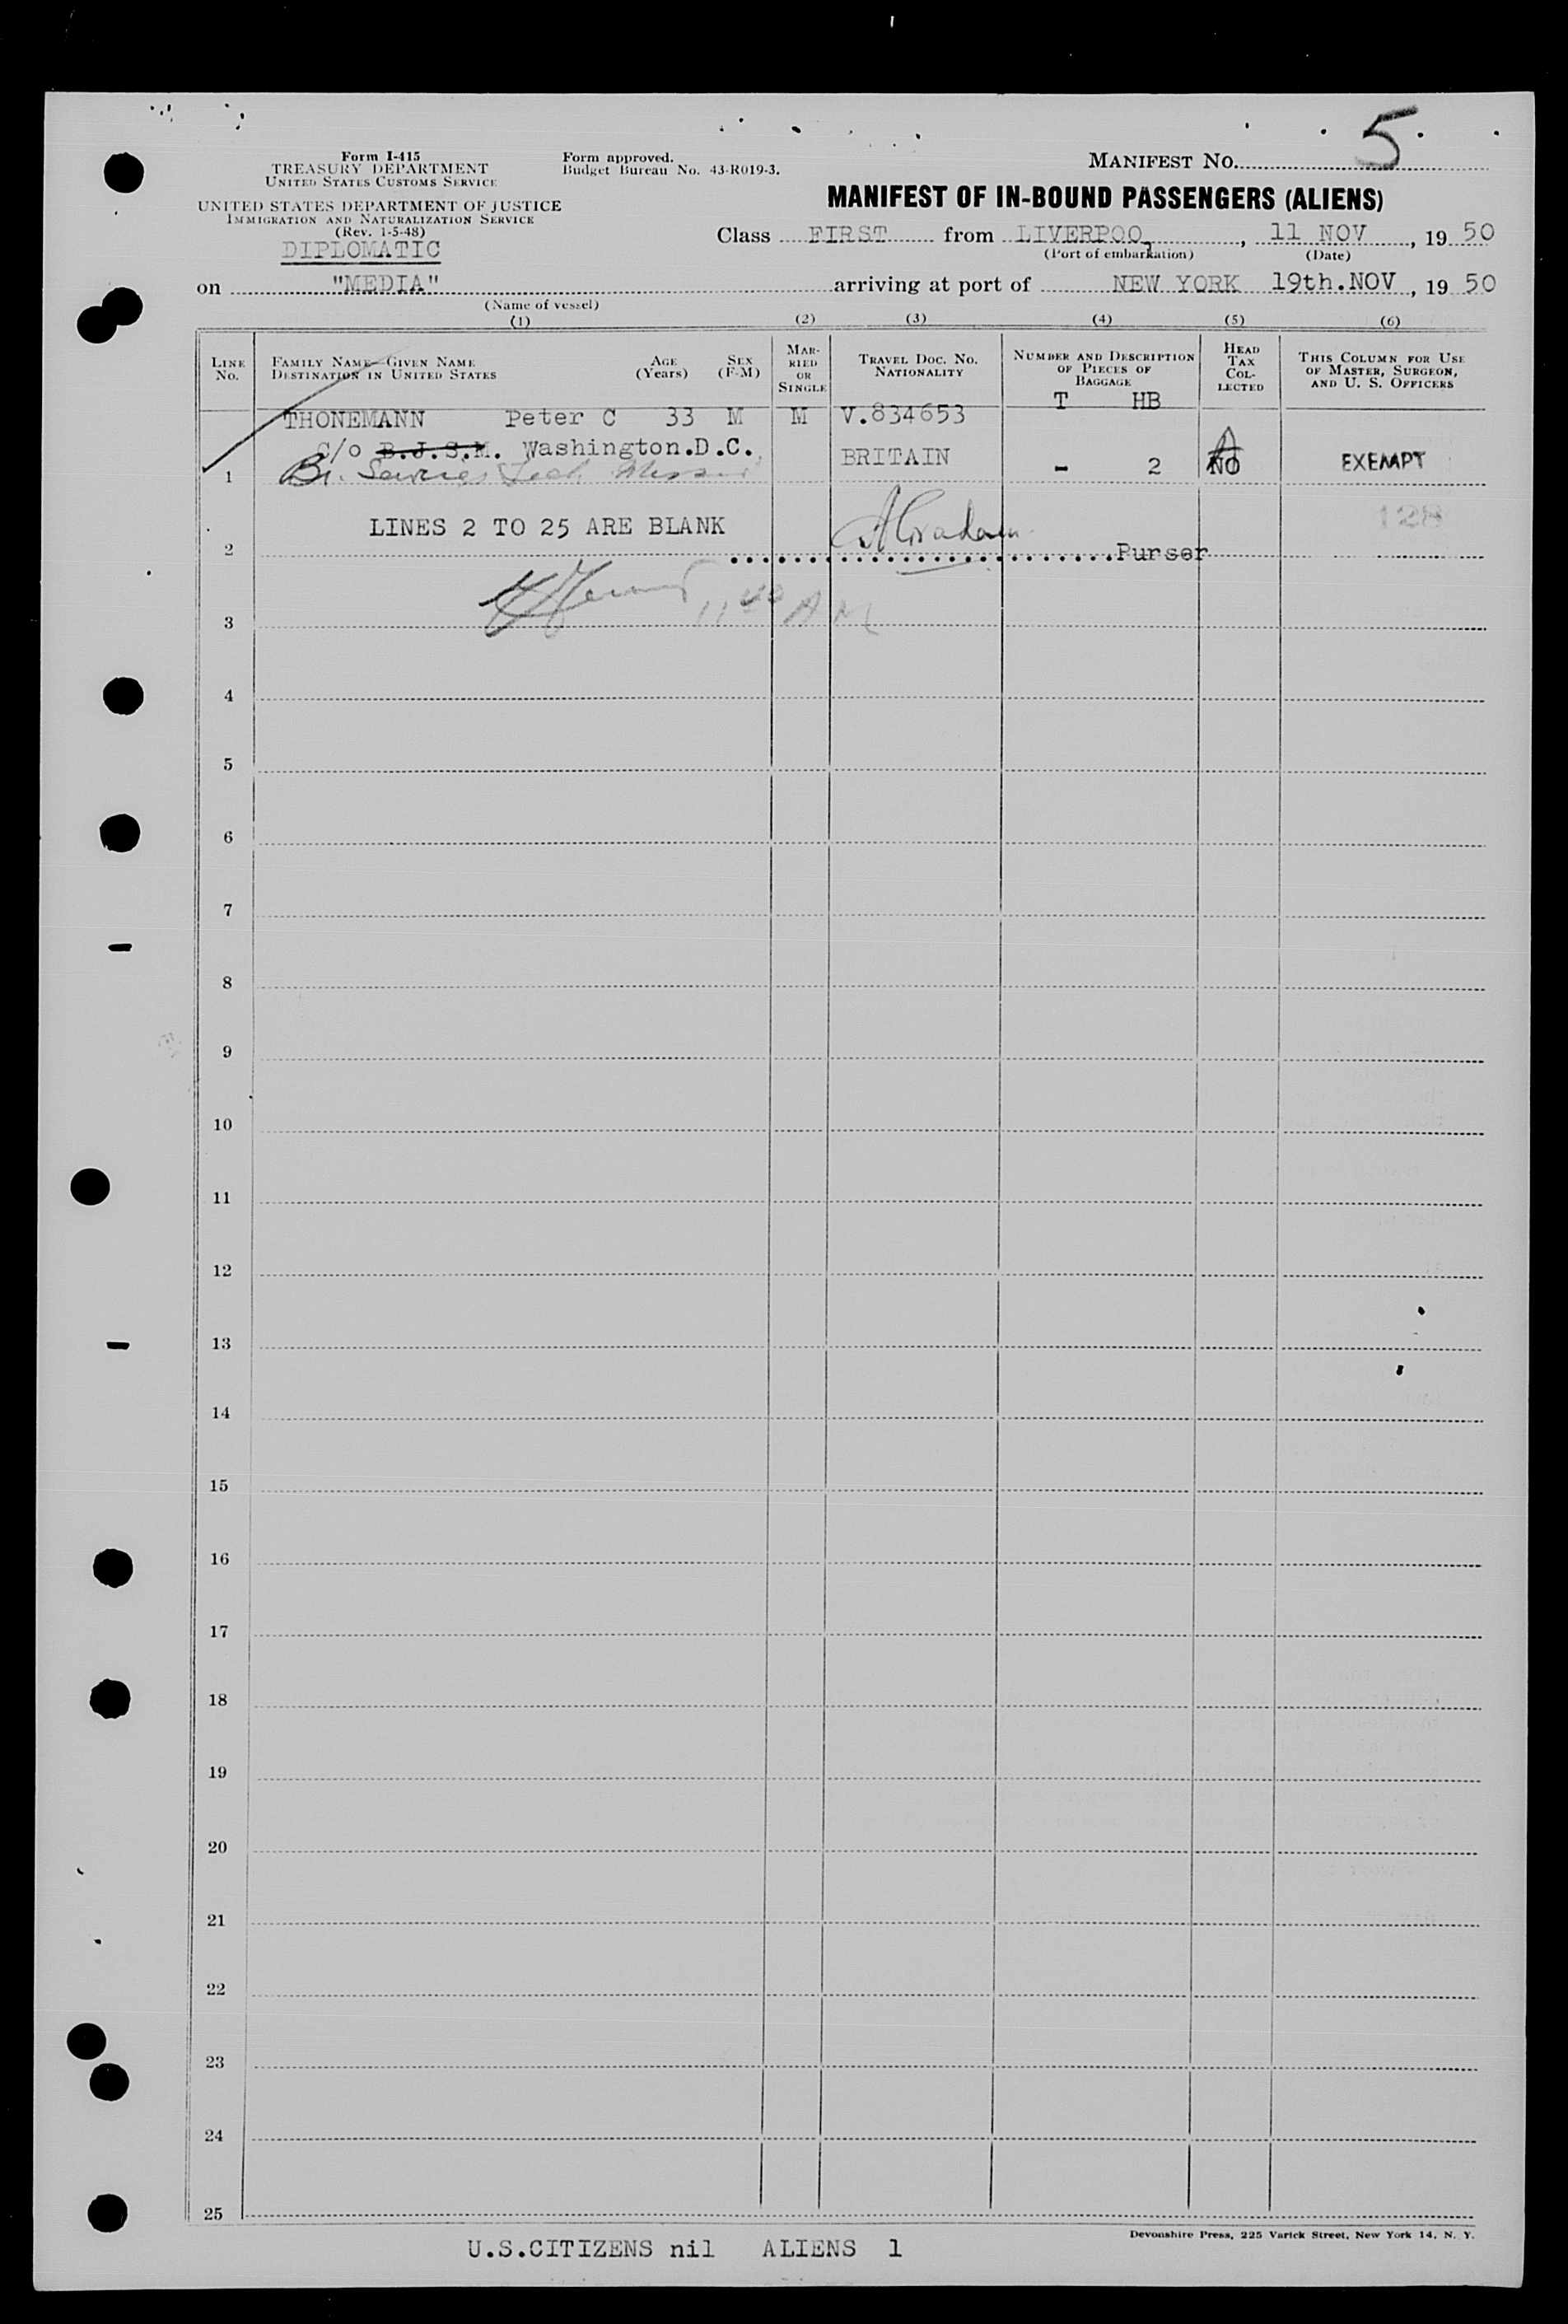 5
Form I-415
TREASURY DEPARTMENT
UNITED STATES CUSTOMS SERVICE
Form approved.
Budget Bureau No. 43-R019-3.
MANIFEST NO.
UNITED STATES DEPARTMENT OF JUSTICE
IMMIGRATION AND NATURALIZATION SERVICE
(Rev. 1-5-48)
MANIFEST OF IN-BOUND PASSENGERS (ALIENS)
DIPLOMATIC
Class FIRST from LIVERPOOL, 11 NOV, 19 50
(Port of embarkation) (Date)
on "MEDIA" arriving at port of NEW YORK 19th.NOV, 19 50
(Name of vessel)
(1) (2) (3) (4) (5) (6)
LINE NO.
FAMILY NAME—GIVEN NAME
DESTINATION IN UNITED STATES
AGE (Years)
SEX (F-M)
MARRIED OR SINGLE
TRAVEL DOC. NO.
NATIONALITY
NUMBER AND DESCRIPTION OF PIECES OF BAGGAGE
HEAD TAX COLLECTED
THIS COLUMN FOR USE OF MASTER, SURGEON, AND U. S. OFFICERS
T HB
THONEMANN Peter C 33 M M V.834653
C/o B.J.S.M. Washington.D.C. BRITAIN - 2 NO EXEMPT
1 Br. Services Tech. Mission
LINES 2 TO 25 ARE BLANK
2 Purser
11 40 AM
3
4
5
6
7
8
9
10
11
12
13
14
15
16
17
18
19
20
21
22
23
24
25
Devonshire Press, 225 Varick Street, New York 14, N. Y.
U.S.CITIZENS nil ALIENS 1